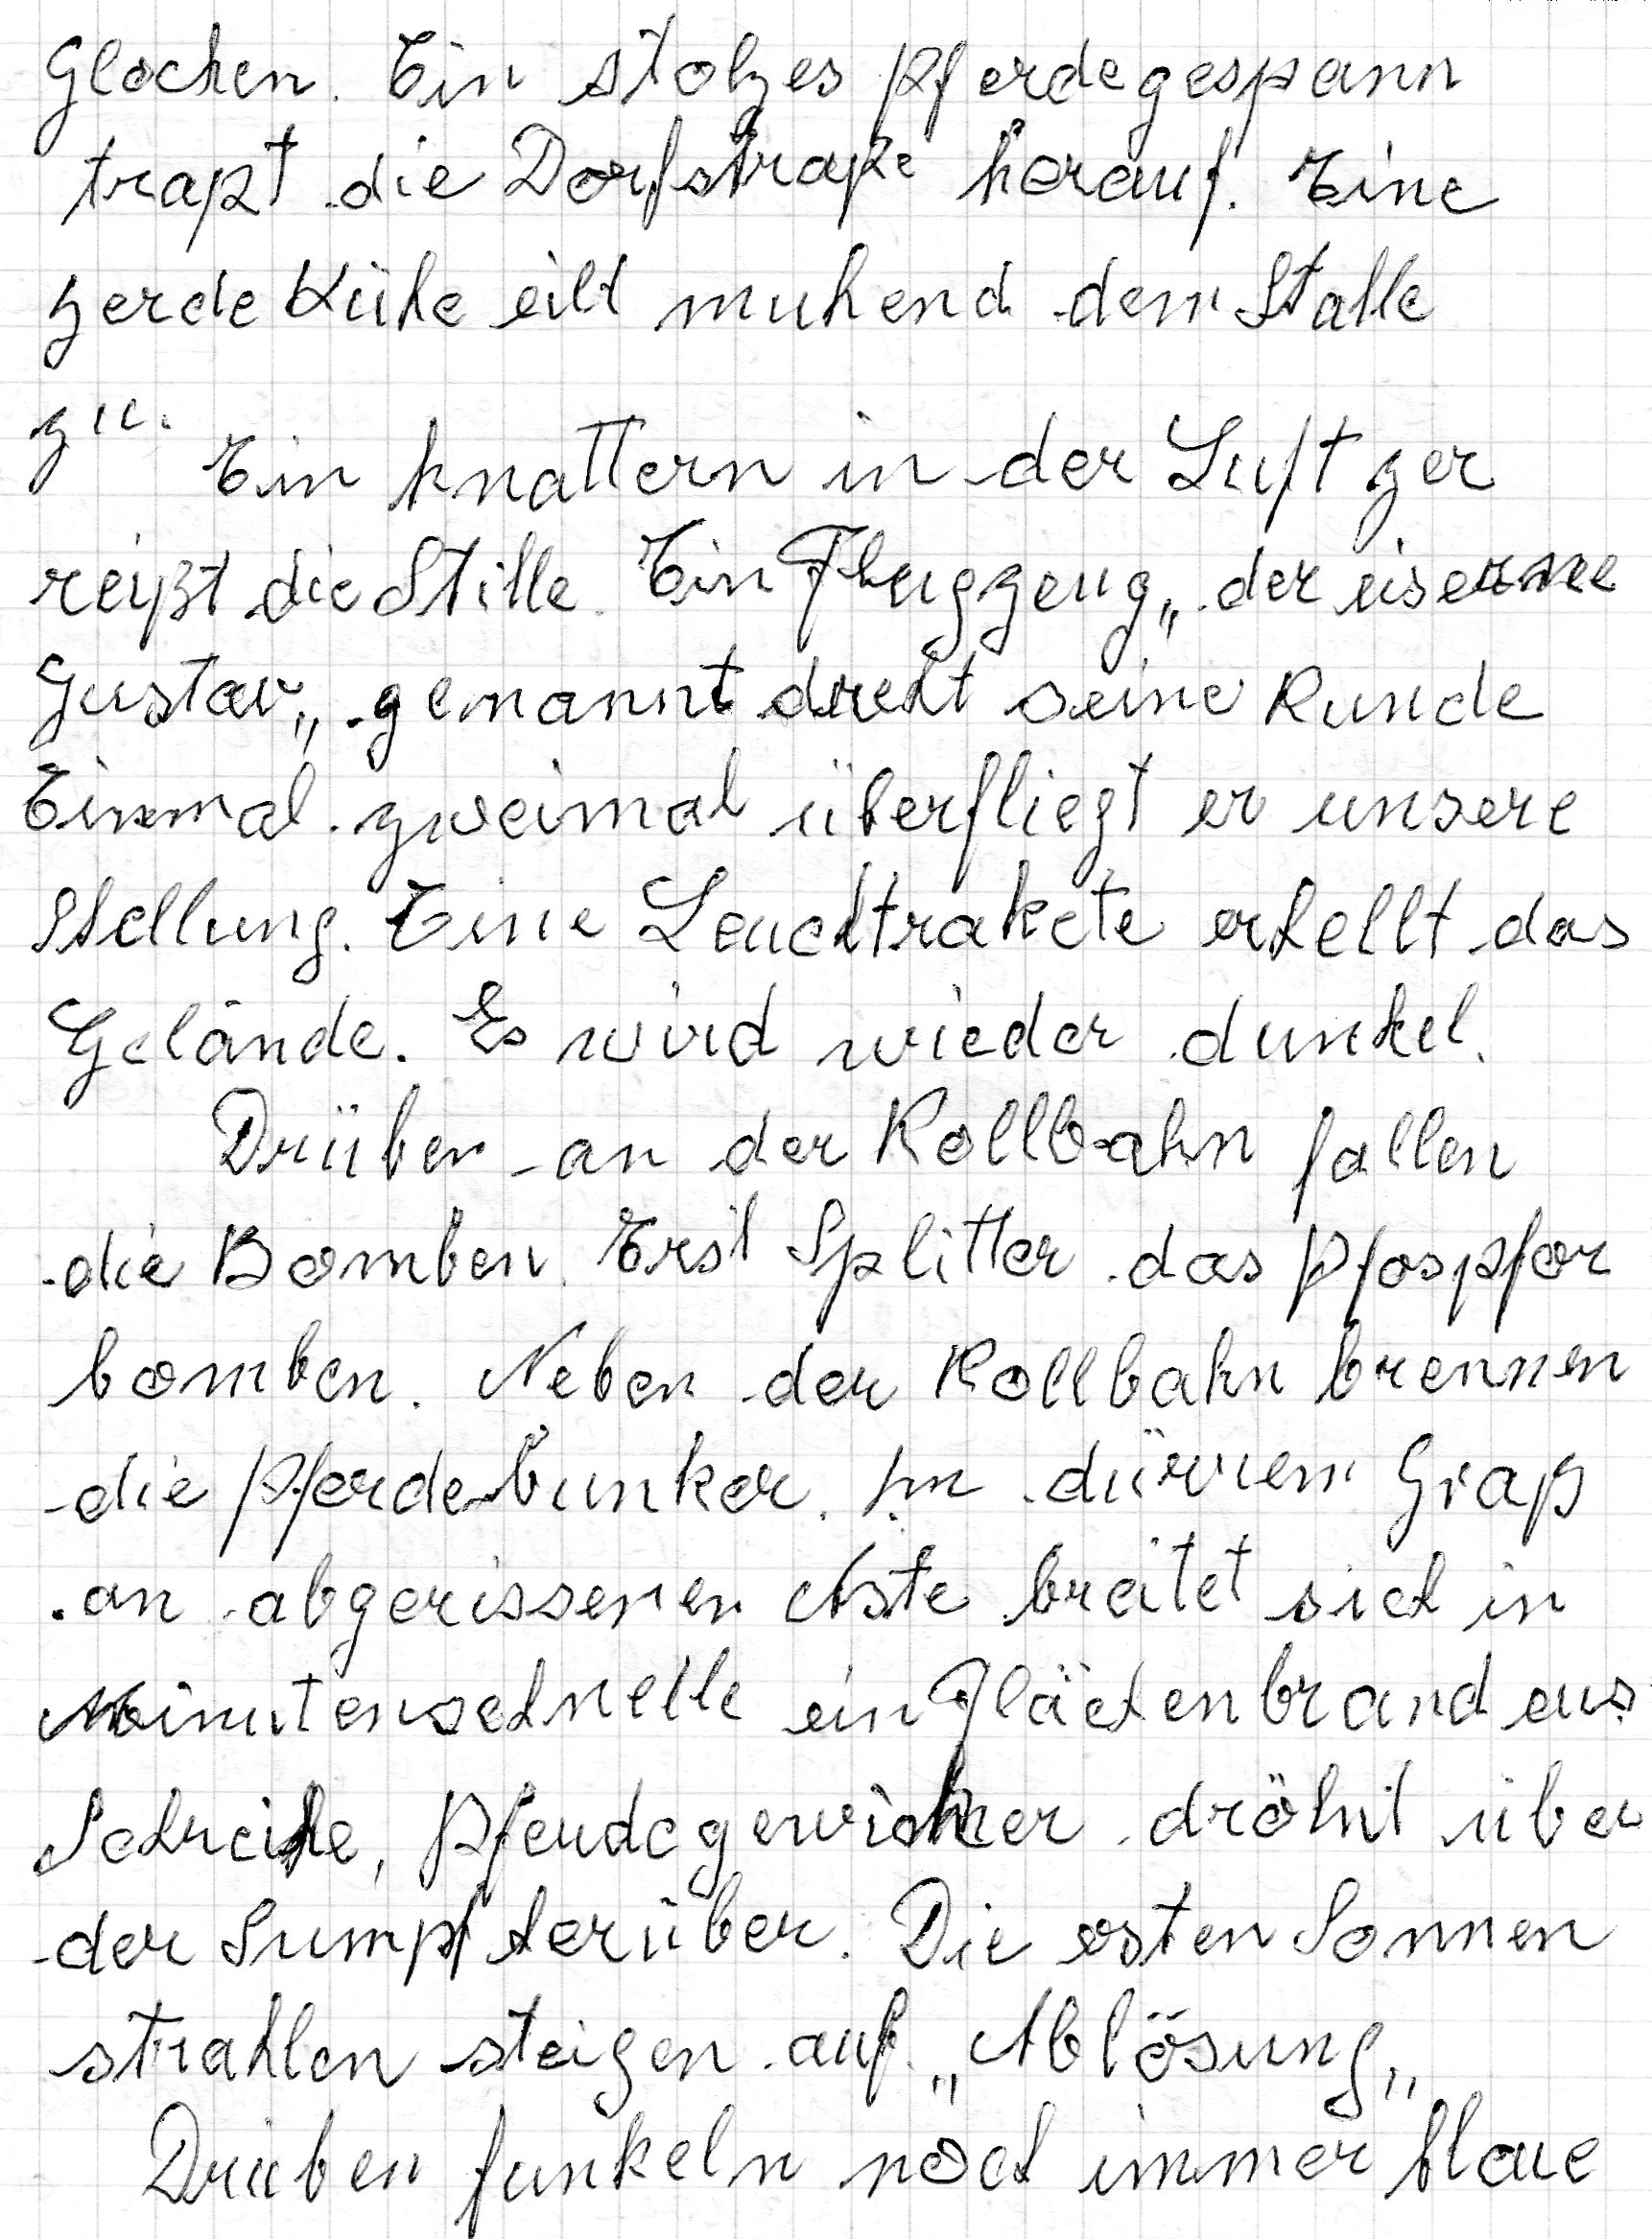 Glocken. Ein stolzes Pferdegespann
trapt die Dorfstraße herauf. Eine
Herde Kühe eilt muhend dem Stalle
zu.
Ein knattern in der Luft zer
reißt die Stille. Ein Flugzeug „der eiserne
Gustav„ genannt dreht seine Runde
Einmal zweimal überfliegt er unsere
Stellung. Eine Leuchtrakete erhellt das
Gelände. Es wird wieder dunkel.
Drüben an der Rollbahn fallen
die Bomben. Erst Splitter das Pfospfor
bomben. Neben der Rollbahn brennen
die Pferdebunker. Im dürrem Graß
an abgerissenen Äste breitet sich in
Minutenschnelle ein Flächenbrand aus
Schreihe, Pferdegewieher dröhnt über
der Sumpf herüber. Die ersten Sonnen
strahlen steigen auf. „Ablösung„
Drüben funkeln noch immer blaue